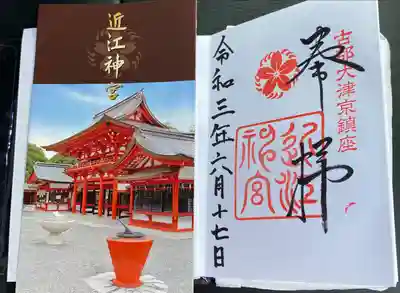 近江神宮
古都大津京鎮座
奉拝
近江
神宮
令和三年六月十七日